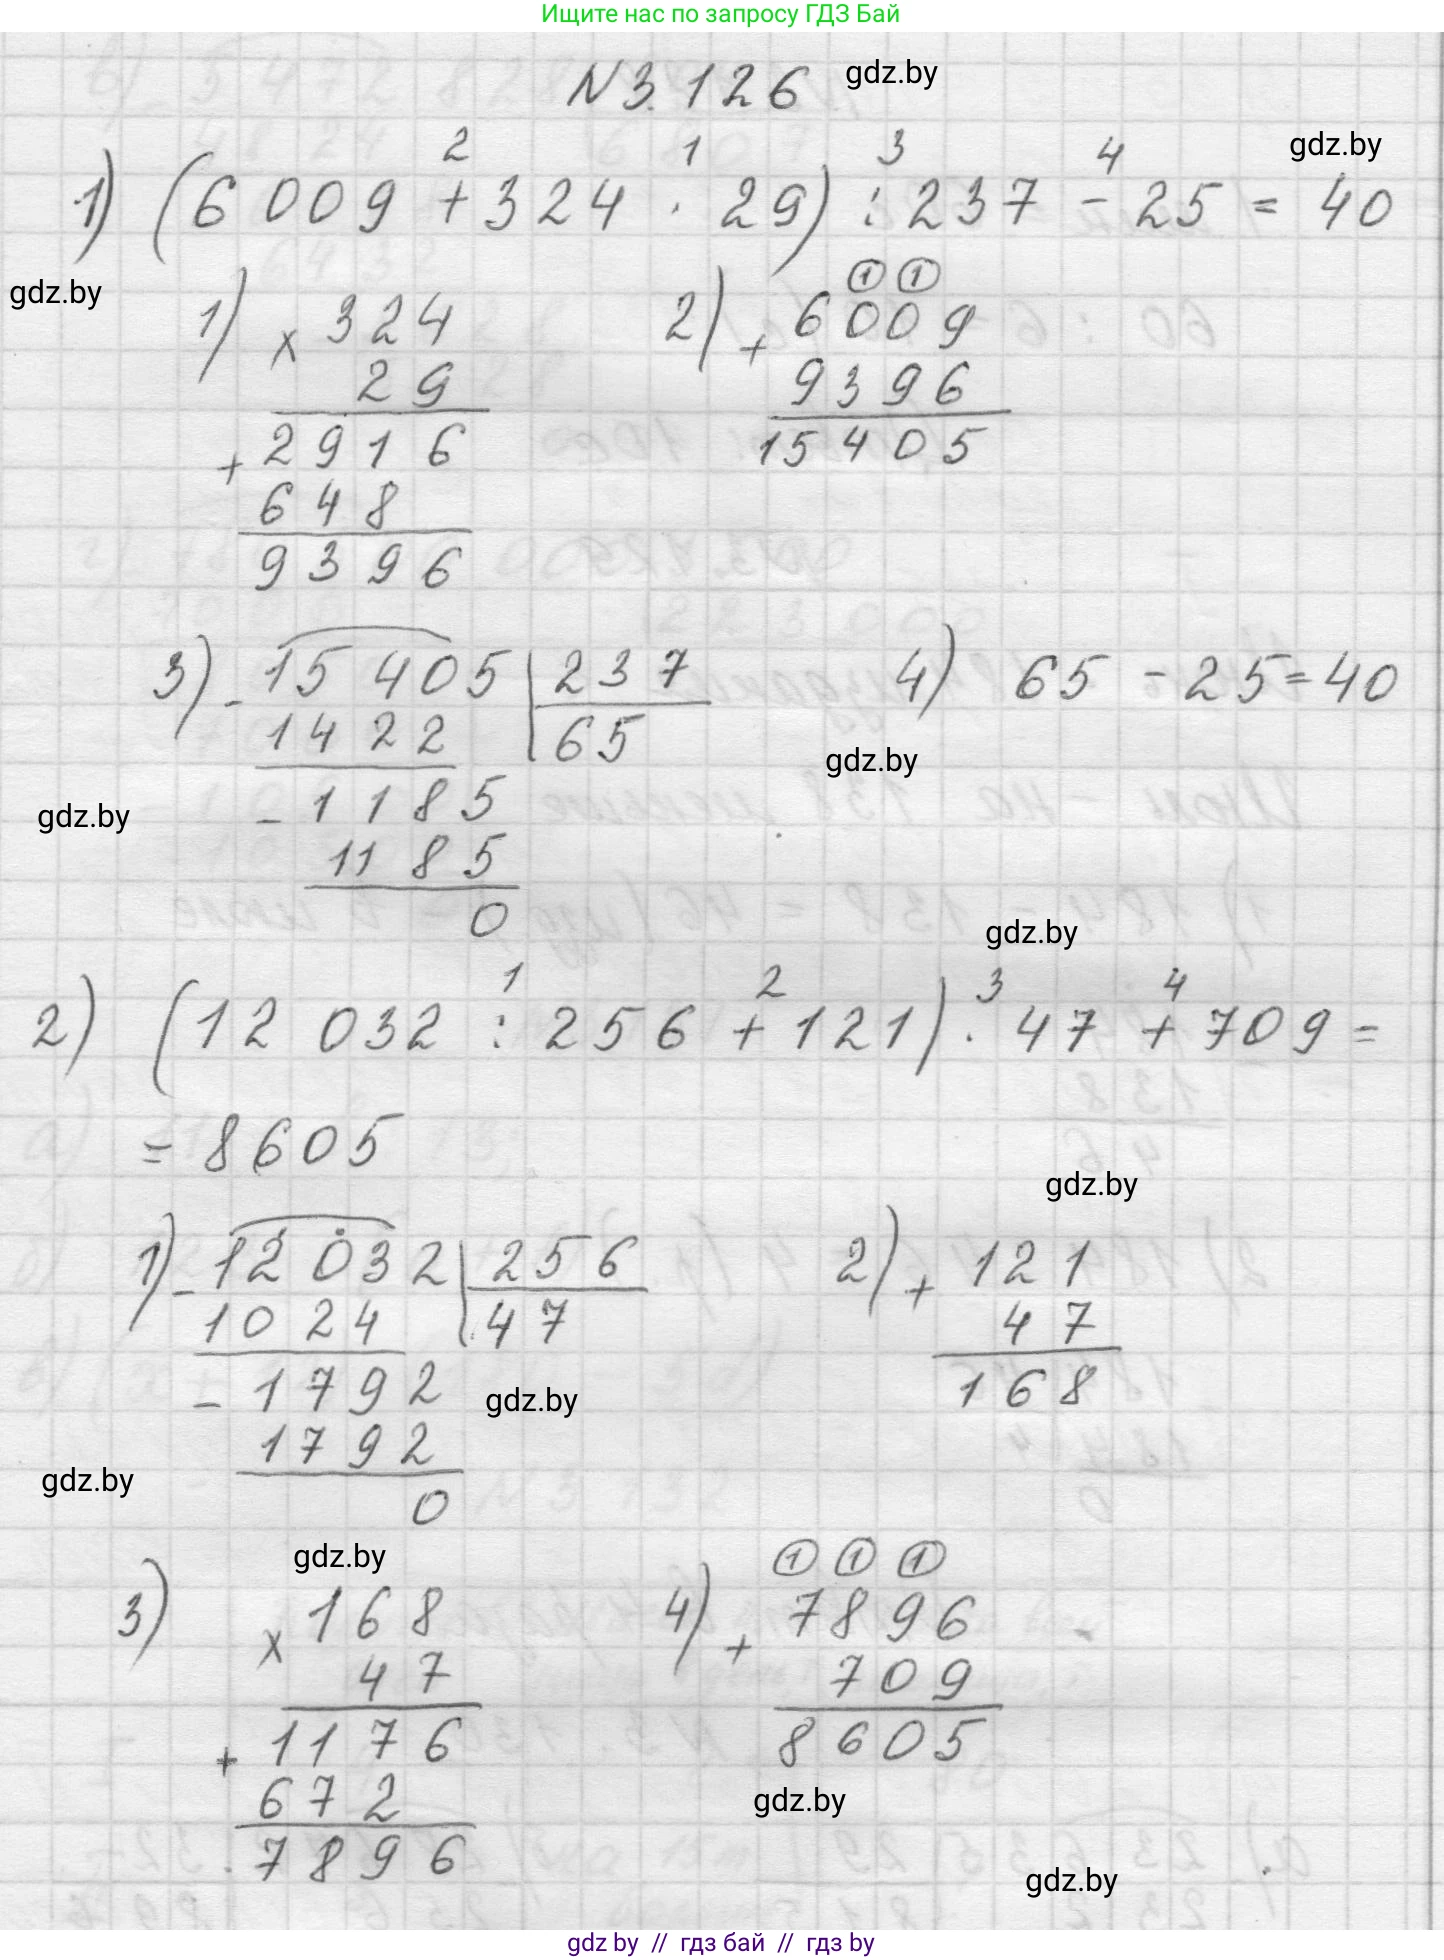 Ищите нас по запросу ГДЗ Бай
N 3.126 gdz.by
gdz.by
2 1 3 4
1) (6 009 + 324 · 29) : 237 - 25 = 40
gdz.by
1) x 324
29
+ 2916
648
9396
2) + 6009
① ①
9396
15405
3) - 15405 | 237
1422 | 65
- 1185
1185
0
4) 65 - 25 = 40
gdz.by
gdz.by
gdz.by
1 2 3 4
2) (12 032 : 256 + 121) · 47 + 709 =
= 8605
gdz.by
1) - 12032 | 256
1024 | 47
- 1792
1792
0
2) + 121
47
168
gdz.by
gdz.by
gdz.by
3) x 168
47
+ 1176
672
7896
① ① ①
4) + 7896
709
8605
gdz.by
gdz.by
gdz.by // гдз бай // гдз by